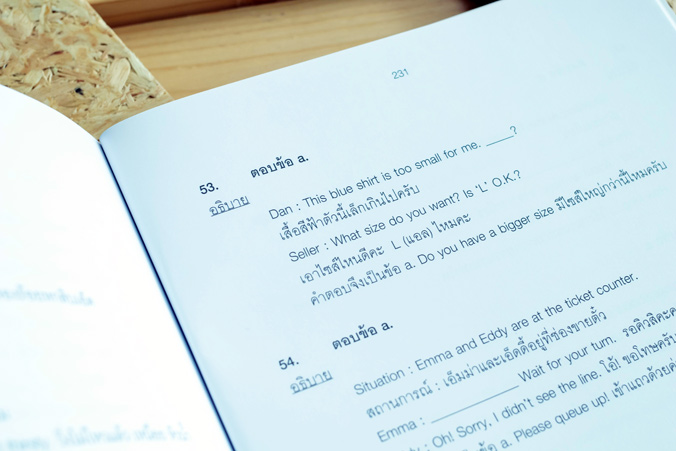 231
53. ตอบข้อ a.
อธิบาย Dan : This blue shirt is too small for me. ____?
เสื้อสีฟ้าตัวนี้เล็กเกินไปครับ
Seller : What size do you want? Is 'L' O.K.?
เอาไซส์ไหนดีคะ L (แอล) ไหมคะ
คำตอบจึงเป็นข้อ a. Do you have a bigger size มีไซส์ใหญ่กว่านี้ไหมครับ
54. ตอบข้อ a.
อธิบาย Situation : Emma and Eddy are at the ticket counter.
สถานการณ์ : เอ็มม่าและเอ็ดดี้อยู่ที่ช่องขายตั๋ว
Emma : ________ Wait for your turn. รอคิวสิคะ
: Oh! Sorry, I didn't see the line. โอ้! ขอโทษครับ
ข้อ a. Please queue up! เข้าแถวด้วยค่ะ